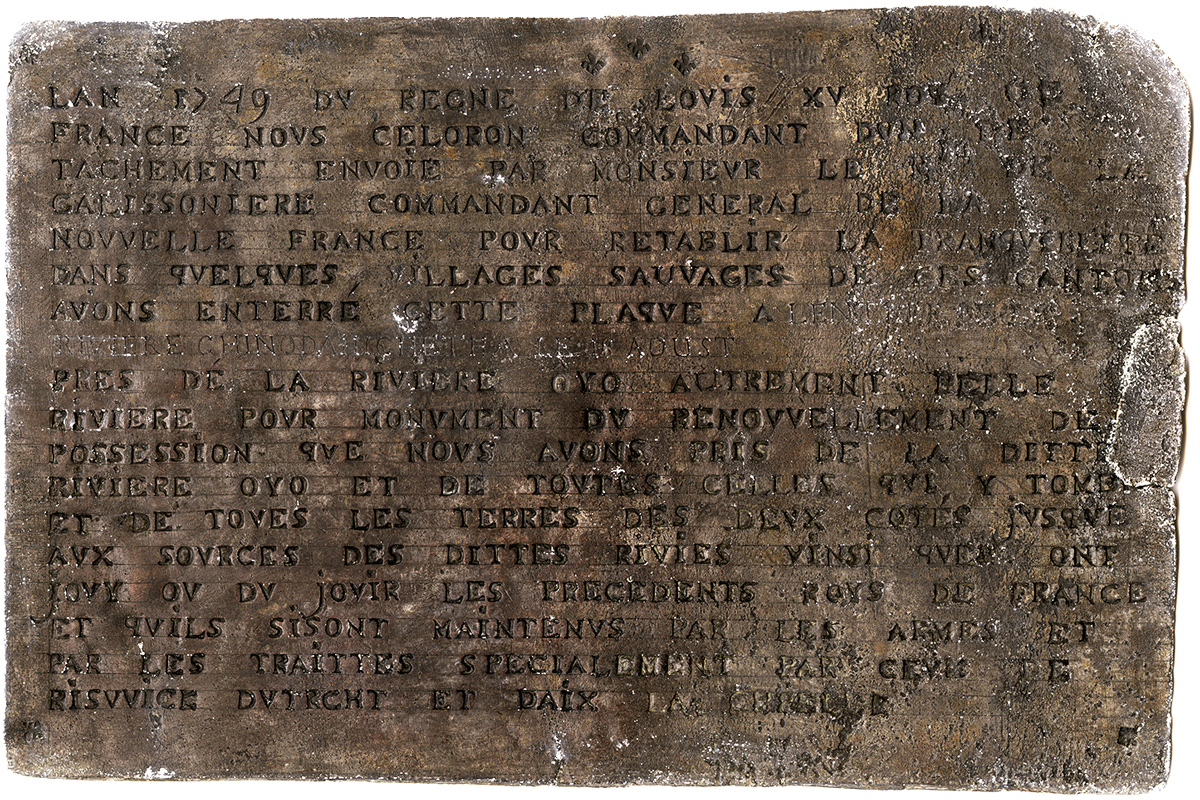 LAN 1749 DV REGNE DE LOVIS XV ROY DE
FRANCE NOVS CELORON COMMANDANT DVN DE
TACHEMENT ENVOIE PAR MONSIEVR LE DE LA
GALISSONIERE COMMANDANT GENERAL DE LA
NOVVELLE FRANCE POVR RETABLIR LA
DANS QVELQVES VILLAGES SAUVAGES DE CES CANTONS
AVONS ENTERRÉ CETTE PLAQVE A
RIVIERE AOUST
PRES DE LA RIVIERE OYO AUTREMENT BELLE
RIVIERE POVR MONVMENT DV RENOVVELLEMENT DE
POSSESSION QVE NOVS AVONS PRIS DE LA DITTE
RIVIERE OYO ET DE TOVTES CELLES QVI Y TOMBE
ET DE TOVES LES TERRES DES DEVX COTES JVSQVE
AVX SOVRCES DES DITTES RIVIES VINSI QVEN ONT
JOVY OV DV JOVIR LES PRECEDENTS ROYS DE FRANCE
ET QVILS SISONT MAINTENVS PAR LES ARMES ET
PAR LES TRAITTES SPECIALEMENT PAR CEVX DE
RISVVICK DVTRCHT ET DAIX LA CHPELLE